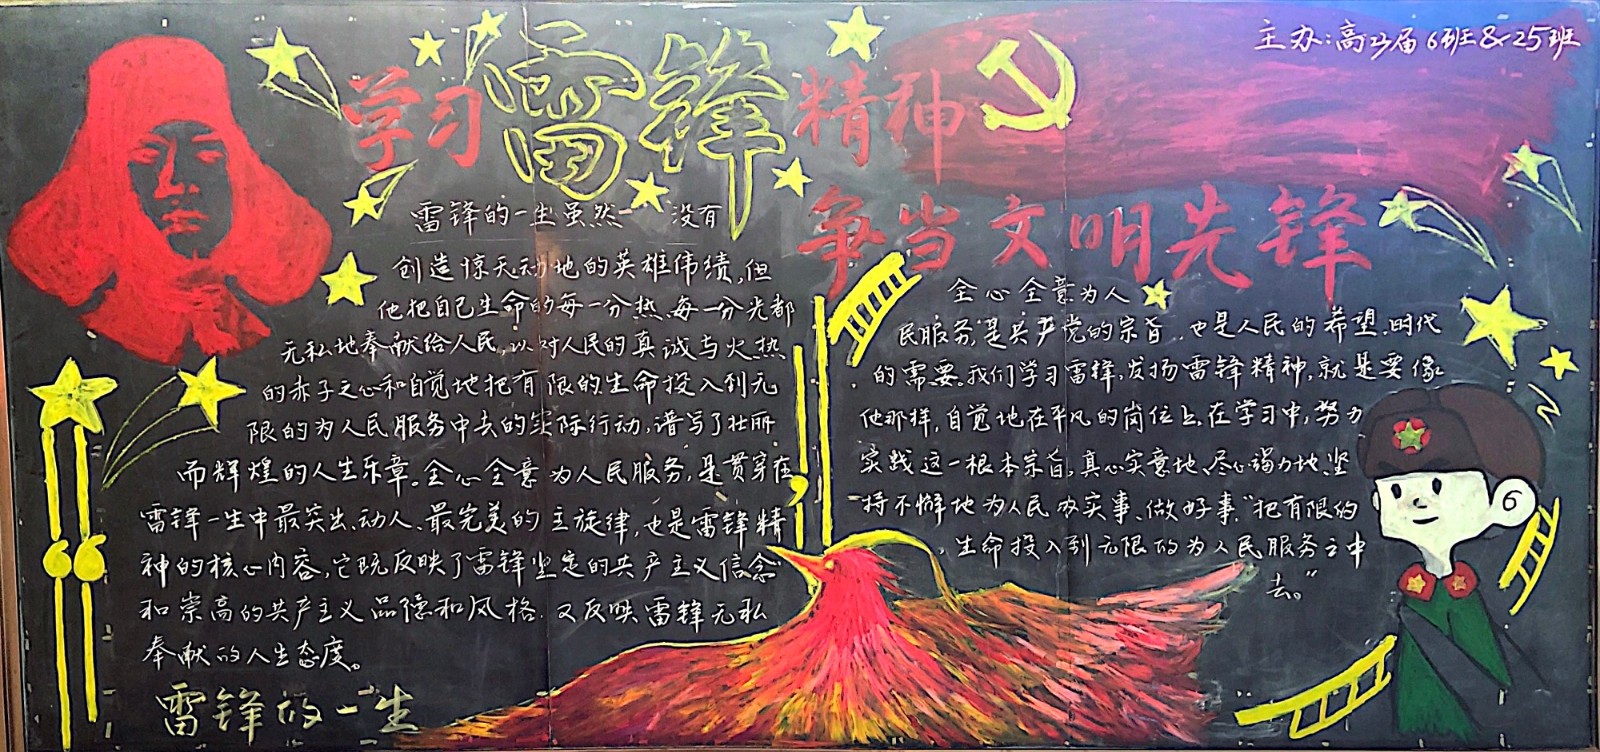 主办:高23届6班&25班
学习雷锋精神
争当文明先锋
雷锋的一生虽然 没有
创造惊天动地的英雄伟绩,但
他把自己生命的每一分热,每一分光都
无私地奉献给人民,以对人民的真诚与火热
的赤子之心和自觉地把有限的生命投入到无
限的为人民服务中去的实际行动,谱写了壮丽
而辉煌的人生乐章。全心全意为人民服务,是贯穿在
雷锋一生中最突出、动人、最完美的主旋律,也是雷锋精
神的核心内容,它既反映了雷锋坚定的共产主义信念
和崇高的共产主义品德和风格.又反映雷锋无私
奉献的人生态度。
雷锋的一生
全心全意为人
民服务,是共产党的宗旨,也是人民的希望.时代
的需要。我们学习雷锋,发扬雷锋精神,就是要像
他那样,自觉地在平凡的岗位上.在学习中,努力
实践这一根本宗旨,真心实意地、尽心竭力地、坚
持不懈地为人民办实事、做好事,"把有限的
生命投入到无限的为人民服务之中
去。"
6